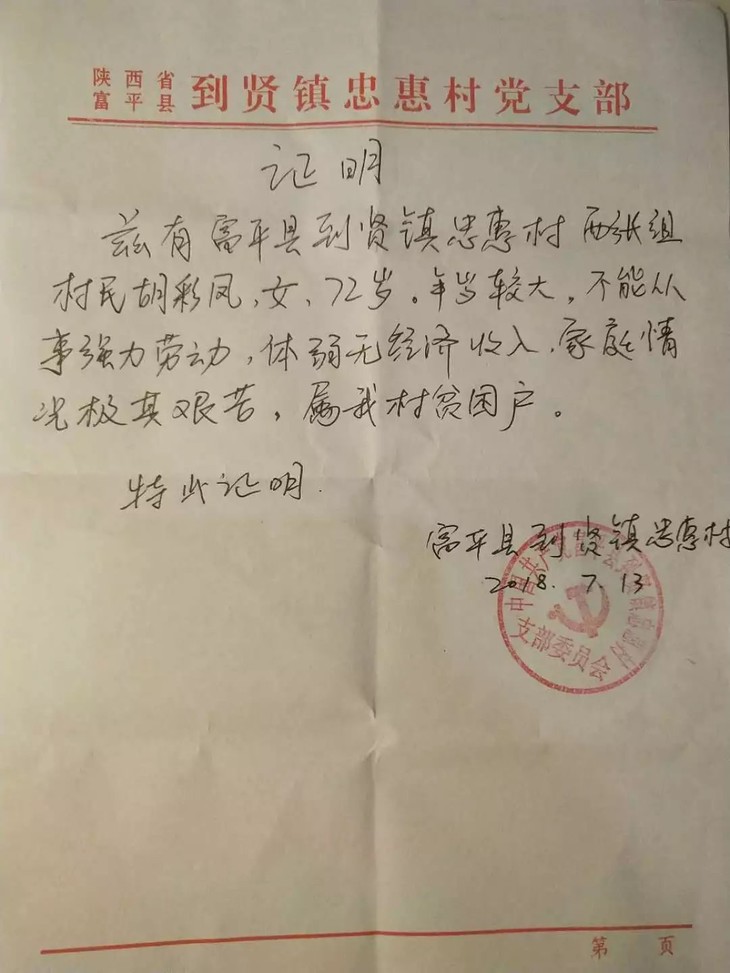 陕西省
富平县 到贤镇忠惠村党支部
证明
兹有富平县到贤镇忠惠村西张组
村民胡彩凤,女、72岁。年岁较大,不能从
事强力劳动,体弱无经济收入,家庭情
况极其艰苦,属我村贫困户。
特此证明.
富平县到贤镇忠惠村
2018.7.13
中国共产党富平县到贤镇忠惠村
支部委员会
第 页